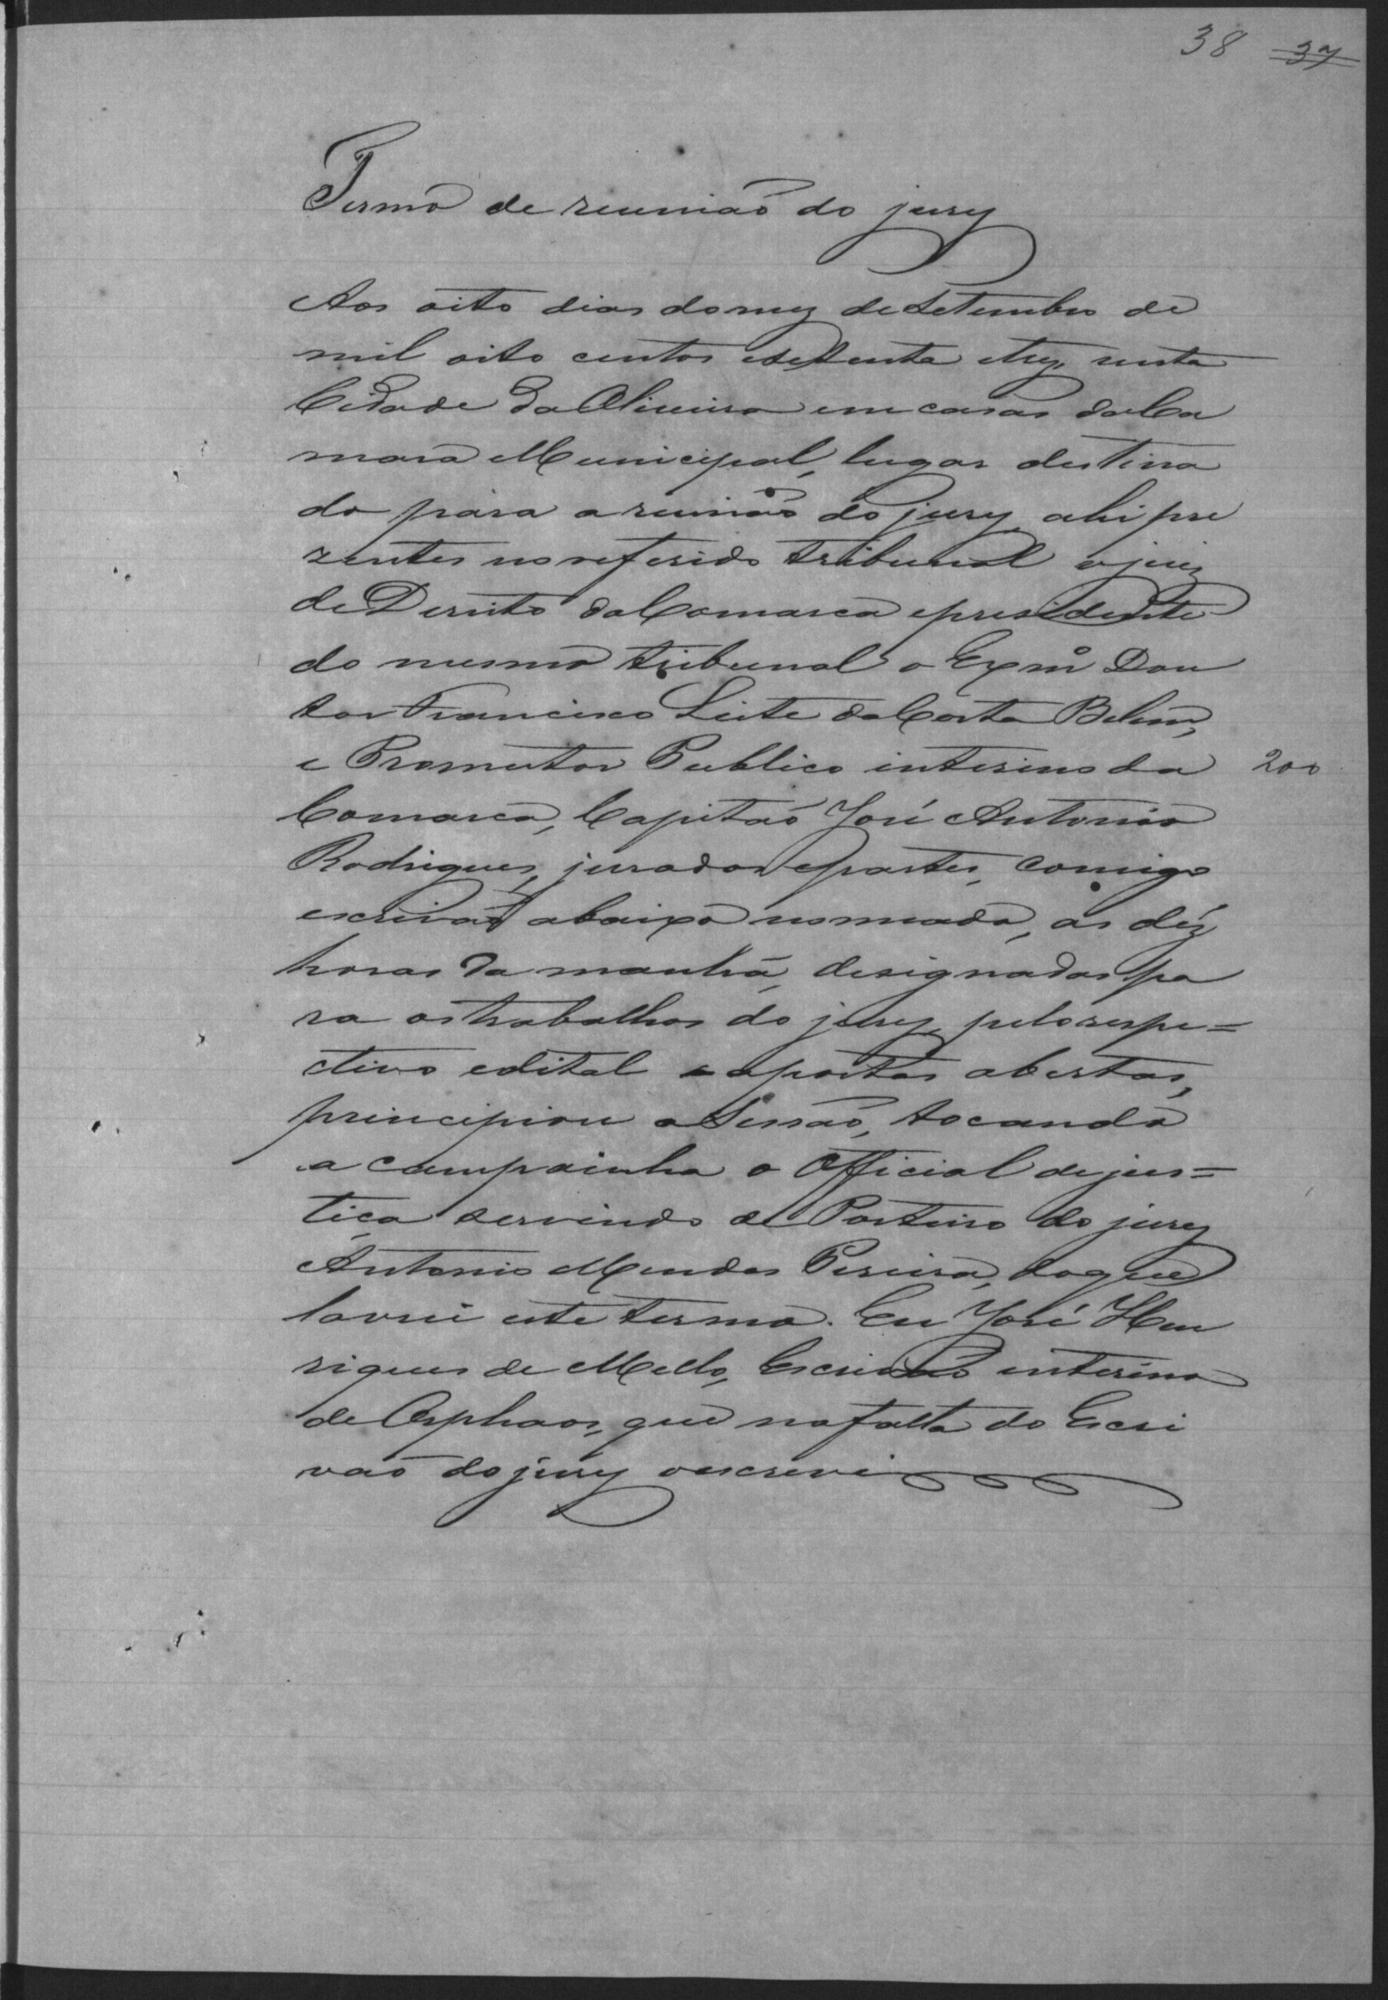 38 37
Termo de reunião do jury
Aos oito dias do mez de Setembro de
mil oito centos e setenta e trez, nesta
Cidade da Oliveira em casas da Ca
mara Municipal, lugar destina
do para a reunião do jury, ahi pre
zentes no referido tribunal o juiz
de Dereito da Comarca e presidente
do mesmo tribunal o Exmº Dou
tor Francisco Leite da Costa Belem,
e Promotor Publico interino da 200
Comarca, Capitão José Antonio
Rodrigues, jurados e partes, comigo
escrivão abaixo nomeado, as déz
horas da manhã, designadas pa
ra os trabalhos do jury, pelo respe=
ctivo edital e a portas abertas,
principiou a Sessão, tocando
a campainha o Official de jus=
tiça servindo de Porteiro do jury
Antonio Mendes Pereira, do que
lavrei este termo. Eu José Hen
riques de Mello, Escrivão interino
de Orphaos, que na falta do Escri
vão do jury o escrevi